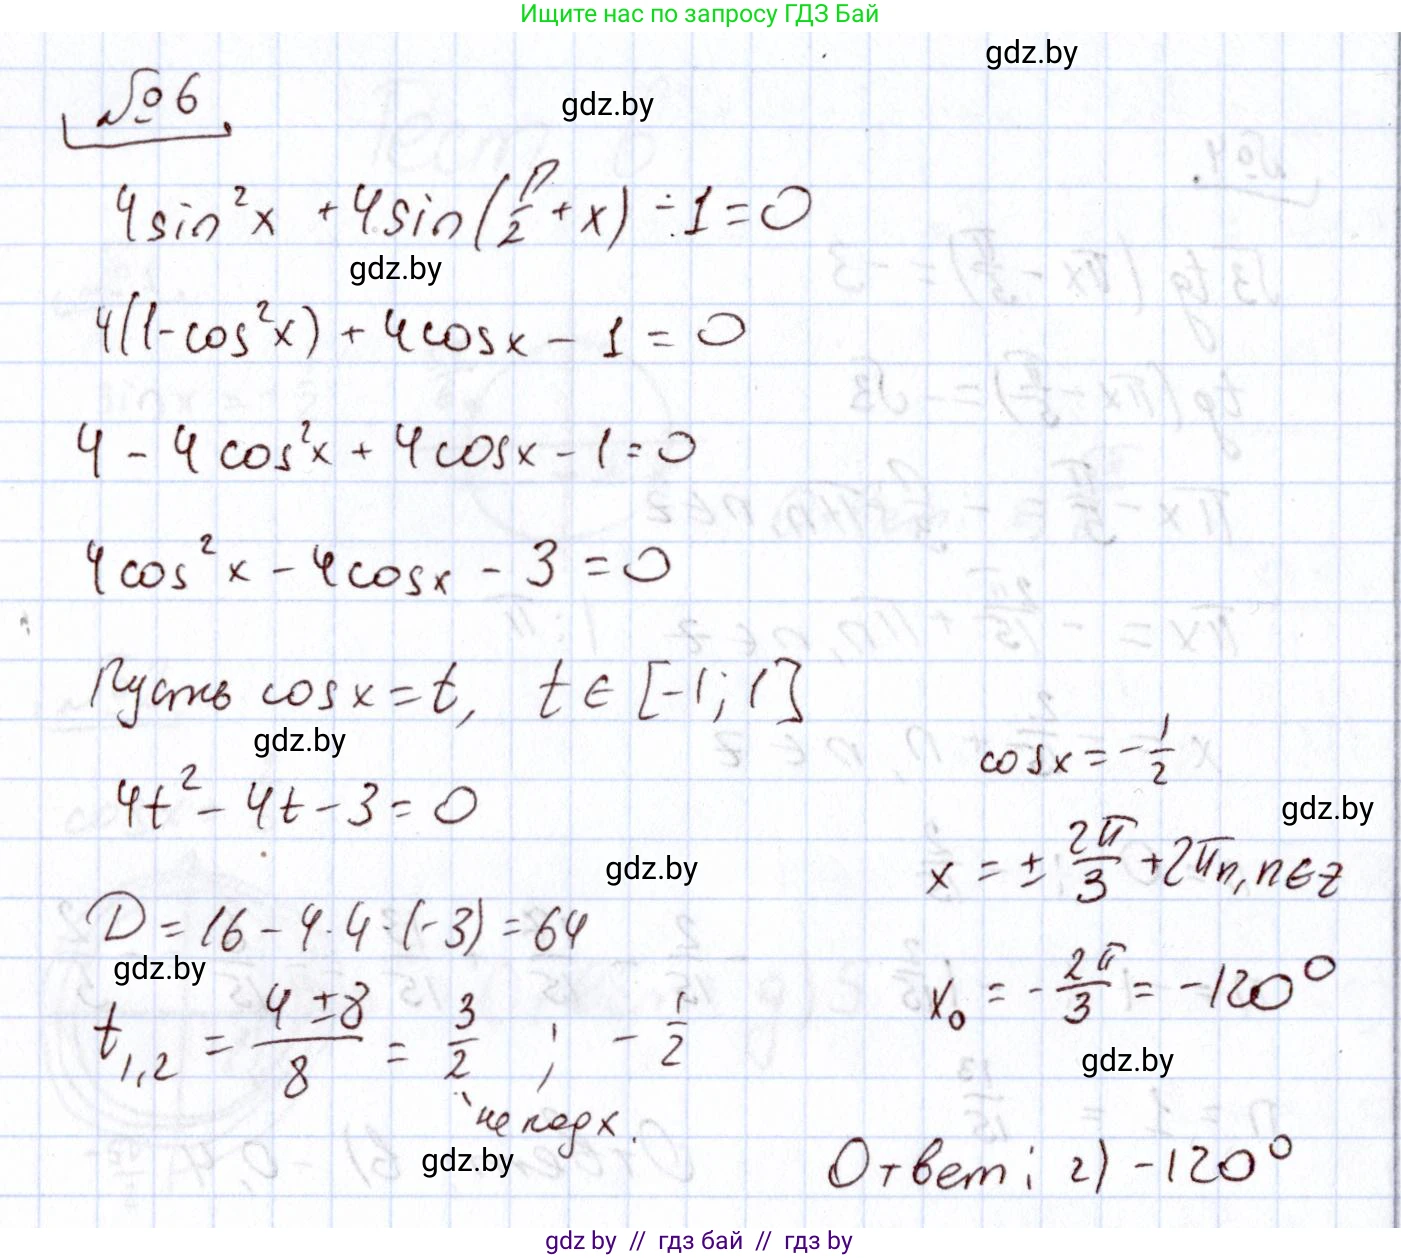 Ищите нас по запросу ГДЗ Бай
gdz.by
№ 6
gdz.by
4sin²x + 4sin(π/2 + x) - 1 = 0
gdz.by
4(1-cos²x) + 4cosx - 1 = 0
4 - 4cos²x + 4cosx - 1 = 0
4cos²x - 4cosx - 3 = 0
Пусть cosx = t, t ∈ [-1; 1]
gdz.by
4t² - 4t - 3 = 0
gdz.by
D = 16 - 4·4·(-3) = 64
gdz.by
t₁,₂ = (4 ± 8)/8 = 3/2 ; - 1/2
не подх.
gdz.by
cosx = - 1/2
gdz.by
x = ± 2π/3 + 2πn, n∈z
x₀ = - 2π/3 = -120°
gdz.by
Ответ: г) -120°
gdz by // гдз бай // гдз by